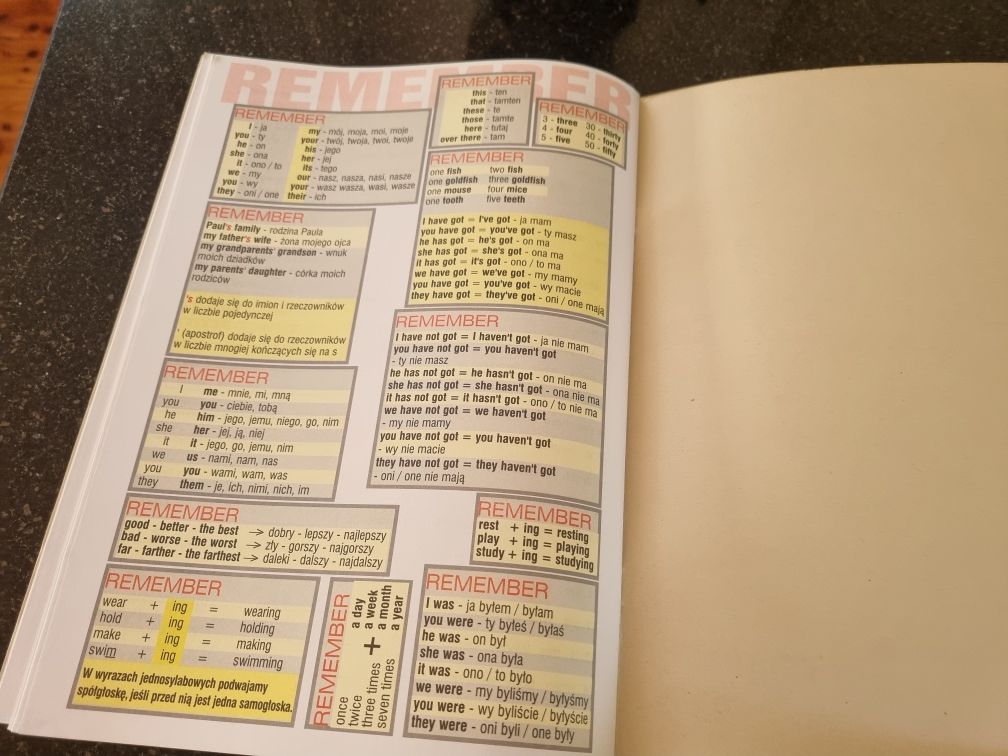 REMEMBER
REMEMBER
I - ja my - mój, moja, moi, moje
you - ty your - twój, twoja, twoi, twoje
he - on his - jego
she - ona her - jej
it - ono / to its - tego
we - my our - nasz, nasza, nasi, nasze
you - wy your - wasz wasza, wasi, wasze
they - oni / one their - ich
REMEMBER
this - ten
that - tamten
these - te
those - tamte
here - tutaj
over there - tam
REMEMBER
3 - three 30 - thirty
4 - four 40 - forty
5 - five 50 - fifty
REMEMBER
one fish two fish
one goldfish three goldfish
one mouse four mice
one tooth five teeth
I have got = I've got - ja mam
you have got = you've got - ty masz
he has got = he's got - on ma
she has got = she's got - ona ma
it has got = it's got - ono / to ma
we have got = we've got - my mamy
you have got = you've got - wy macie
they have got = they've got - oni / one mają
REMEMBER
Paul's family - rodzina Paula
my father's wife - żona mojego ojca
my grandparents' grandson - wnuk
moich dziadków
my parents' daughter - córka moich
rodziców
's dodaje się do imion i rzeczowników
w liczbie pojedynczej
' (apostrof) dodaje się do rzeczowników
w liczbie mnogiej kończących się na s
REMEMBER
I have not got = I haven't got - ja nie mam
you have not got = you haven't got
- ty nie masz
he has not got = he hasn't got - on nie ma
she has not got = she hasn't got - ona nie ma
it has not got = it hasn't got - ono / to nie ma
we have not got = we haven't got
- my nie mamy
you have not got = you haven't got
- wy nie macie
they have not got = they haven't got
- oni / one nie mają
REMEMBER
I me - mnie, mi, mną
you you - ciebie, tobą
he him - jego, jemu, niego, go, nim
she her - jej, ją, niej
it it - jego, go, jemu, nim
we us - nami, nam, nas
you you - wami, wam, was
they them - je, ich, nimi, nich, im
REMEMBER
good - better - the best → dobry - lepszy - najlepszy
bad - worse - the worst → zły - gorszy - najgorszy
far - farther - the farthest → daleki - dalszy - najdalszy
REMEMBER
rest + ing = resting
play + ing = playing
study + ing = studying
REMEMBER
wear + ing = wearing
hold + ing = holding
make + ing = making
swim + ing = swimming
W wyrazach jednosylabowych podwajamy
spółgłoskę, jeśli przed nią jest jedna samogłoska.
REMEMBER
once a day
twice a week
three times + a month
seven times a year
REMEMBER
I was - ja byłem / byłam
you were - ty byłeś / byłaś
he was - on był
she was - ona była
it was - ono / to było
we were - my byliśmy / byłyśmy
you were - wy byliście / byłyście
they were - oni byli / one były